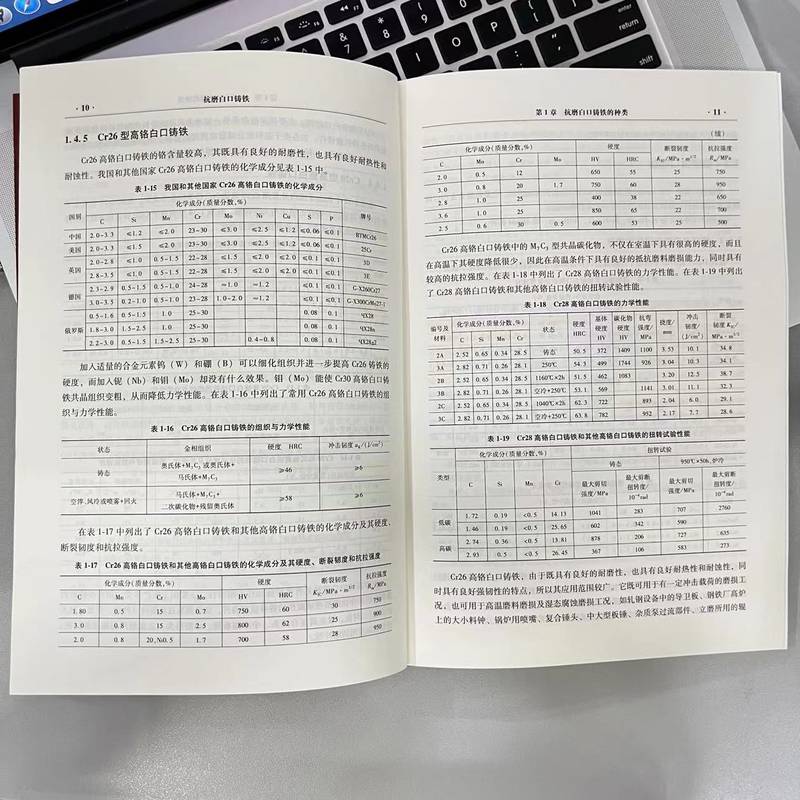 ·10·
抗磨白口铸铁
1.4.5 Cr26 型高铬白口铸铁
Cr26 高铬白口铸铁的铬含量较高，其既具有良好的耐磨性，也具有良好耐热性和
耐蚀性。我国和其他国家 Cr26 高铬白口铸铁的化学成分见表 1-15 中。
表 1-15 我国和其他国家 Cr26 高铬白口铸铁的化学成分
国别 化学成分(质量分数,%) 牌号
C Si Mn Cr Mo Ni Cu S P
中国 2.0~3.3 ≤1.2 ≤2.0 23~30 ≤3.0 ≤2.5 ≤1.2 ≤0.06 ≤0.1 BTMCr26
美国 2.0~3.3 ≤1.5 ≤2.0 23~30 ≤3.0 ≤2.5 ≤1.2 ≤0.06 ≤0.1 25Cr
英国 2.0~2.8 ≤1.0 0.5~1.5 22~28 ≤1.5 ≤2.0 ≤2.0 ≤0.1 ≤0.1 3D
2.8~3.5 ≤1.0 0.5~1.5 22~28 ≤1.5 ≤2.0 ≤2.0 ≤0.1 ≤0.1 3E
德国 2.3~2.9 0.5~1.5 0.5~1.5 24~28 ≈1.0 ≈1.2 ≤0.1 ≤0.1 G-X260Cr27
3.0~3.5 0.2~1.0 0.5~1.0 23~28 1.0~2.0 ≈1.2 ≤0.1 ≤0.1 G-X300CrMo27-1
俄罗斯 0.5~1.6 0.5~1.5 1.0 25~30 0.08 0.1 ЧХ28
1.8~3.0 1.5~2.5 1.0 25~30 0.08 0.1 ЧХ28п
2.2~3.0 0.5~1.5 1.5~2.5 25~30 0.4~0.8 0.08 0.1 ЧХ28д2
加入适量的合金元素钨（W）和硼（B）可以细化组织并进一步提高 Cr26 铸铁的
硬度，而加入铌（Nb）和钼（Mo）却没有什么效果。钼（Mo）能使 Cr30 高铬白口铸
铁共晶组织变粗，从而降低力学性能。在表 1-16 中列出了常用 Cr26 高铬白口铸铁的组
织与力学性能。
表 1-16 Cr26 高铬白口铸铁的组织与力学性能
状态 金相组织 硬度 HRC 冲击韧度 aK/(J/cm²)
铸态 奥氏体+M₇C₃ 或奥氏体+
马氏体+M₇C₃ ≥46 ≥6
空淬、风冷或喷雾+回火 马氏体+M₇C₃+
二次碳化物+残留奥氏体 ≥58 ≥6
在表 1-17 中列出了 Cr26 高铬白口铸铁和其他高铬白口铸铁的化学成分及其硬度、
断裂韧度和抗拉强度。
表 1-17 Cr26 高铬白口铸铁和其他高铬白口铸铁的化学成分及其硬度、断裂韧度和抗拉强度
化学成分(质量分数,%) 硬度 断裂韧度 抗拉强度
C Mn Cr Mo HV HRC KIC/MPa·m^1/2 Rm/MPa
1.80 0.5 15 0.7 750 60 30 750
3.0 0.8 15 2.5 800 62 25 900
2.0 0.8 20,Ni0.5 1.7 700 58 28 950
第 1 章 抗磨白口铸铁的种类
·11·
(续)
化学成分(质量分数,%) 硬度 断裂韧度 抗拉强度
C Mn Cr Mo HV HRC KIC/MPa·m^1/2 Rm/MPa
2.0 0.5 12 650 55 25 750
3.0 0.8 20 1.7 750 60 28 950
2.8 1.0 25 400 38 22 650
3.6 1.0 25 850 65 22 700
2.5 0.6 30 0.5 600 53 25 500
Cr26 高铬白口铸铁中的 M₇C₃ 型共晶碳化物，不仅在室温下具有很高的硬度，而且
在高温下其硬度降低很少，因此在高温条件下具有良好的抵抗磨料磨损能力，同时具有
较高的抗拉强度。在表 1-18 中列出了 Cr28 高铬白口铸铁的力学性能。在表 1-19 中列出
了 Cr28 高铬白口铸铁和其他高铬白口铸铁的扭转试验性能。
表 1-18 Cr28 高铬白口铸铁的力学性能
编号及材料 化学成分(质量分数,%) 状态 硬度 HRC 基体硬度 HV 碳化物硬度 HV 抗弯强度/MPa 挠度/mm 冲击韧度/(J/cm²) 断裂韧度 KIC/
C Si Mn Cr
2A 2.52 0.65 0.34 28.5 铸态 50.5 372 1409 1100 3.53 10.1 34.8
3A 2.82 0.71 0.26 28.1 250℃ 54.3 499 1744 926 3.04 10.3 34.1
2B 2.52 0.65 0.34 28.5 1160℃×2h 51.5 462 1083 3.20 12.5 38.7
3B 2.82 0.71 0.26 28.1 空冷+250℃ 53.1 569 1141 3.01 11.1 32.3
2C 2.52 0.65 0.34 28.5 1040℃×2h 62.3 722 893 2.04 6.0 29.1
3C 2.82 0.71 0.26 28.1 空冷+250℃ 63.8 782 952 2.17 7.7 28.6
表 1-19 Cr28 高铬白口铸铁和其他高铬白口铸铁的扭转试验性能
类型 化学成分(质量分数,%) 扭转试验
铸态 950℃×50h,炉冷
C Si Mn Cr 最大剪切强度/MPa 最大剪断扭转度/10⁻⁴rad 最大剪切强度/MPa 最大剪断扭转度/10⁻⁴rad
低碳 1.72 0.19 <0.5 14.13 1041 283 707 2760
1.46 0.19 <0.5 25.65 602 342 590
高碳 2.74 0.36 <0.5 13.81 878 206 727 635
2.93 0.5 <0.5 26.45 367 106 583 273
Cr26 高铬白口铸铁，由于既具有良好的耐磨性，也具有良好耐热性和耐蚀性，同
时具有良好强韧性的特点，所以其应用范围较广。它既可用于有一定冲击载荷的磨损工
况，也可用于高温磨料磨损及湿态腐蚀磨损工况，如轧钢设备中的导卫板、钢铁厂高炉
上的大小料钟、锅炉用喷嘴、复合锤头、中大型板锤、杂质泵过流部件、立磨所用的辊
return
shift